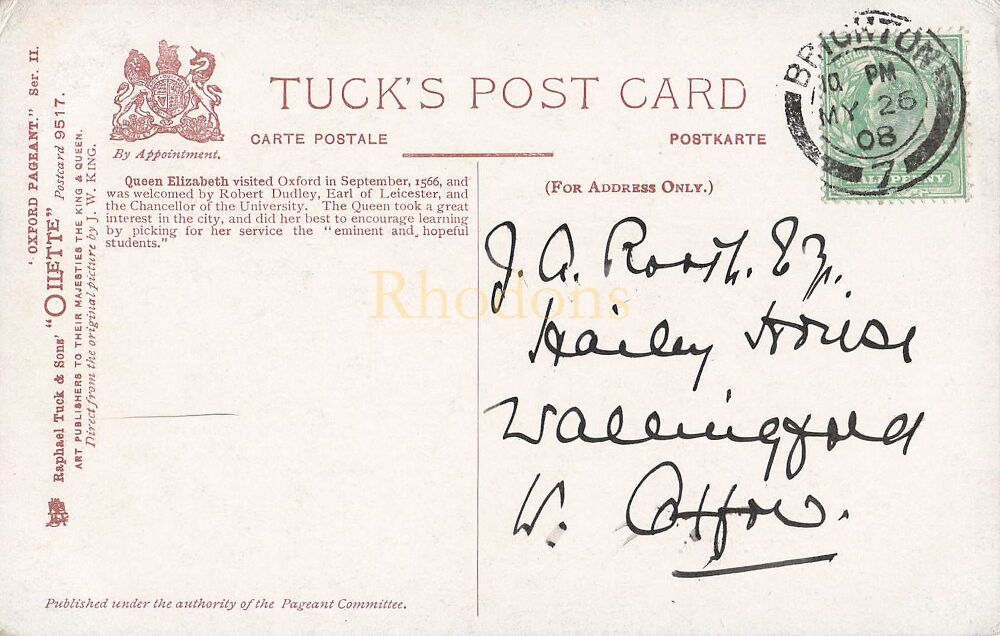 TUCK'S POST CARD
CARTE POSTALE
POSTKARTE
By Appointment.
(FOR ADDRESS ONLY.)
Queen Elizabeth visited Oxford in September, 1566, and
was welcomed by Robert Dudley, Earl of Leicester, and
the Chancellor of the University. The Queen took a great
interest in the city, and did her best to encourage learning
by picking for her service the "eminent and hopeful
students."
"OXFORD PAGEANT." Ser. II.
Raphael Tuck & Sons' "OILETTE" Postcard 9517.
ART PUBLISHERS TO THEIR MAJESTIES THE KING & QUEEN.
Direct from the original picture by J. W. KING.
BRIGHTON
PM
MY 26
08
7
HALFPENNY
J. A. Rooth. Esq.
Hailey House
Wallingford
Rhodons
Published under the authority of the Pageant Committee.